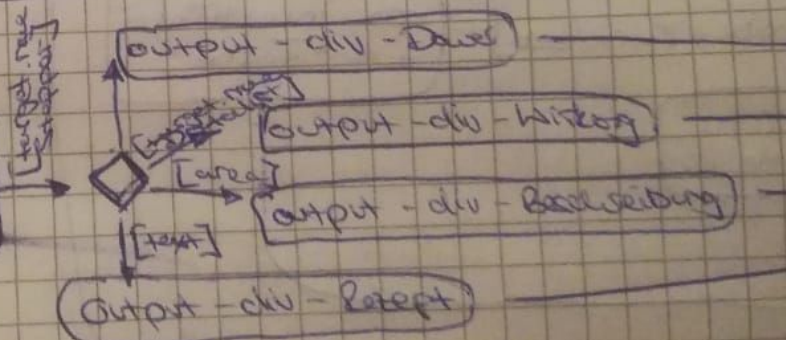 output - div - Dauer
output - div - Wirkung
[area]
output - div - Beschreibung
[text]
output - div - Rezept